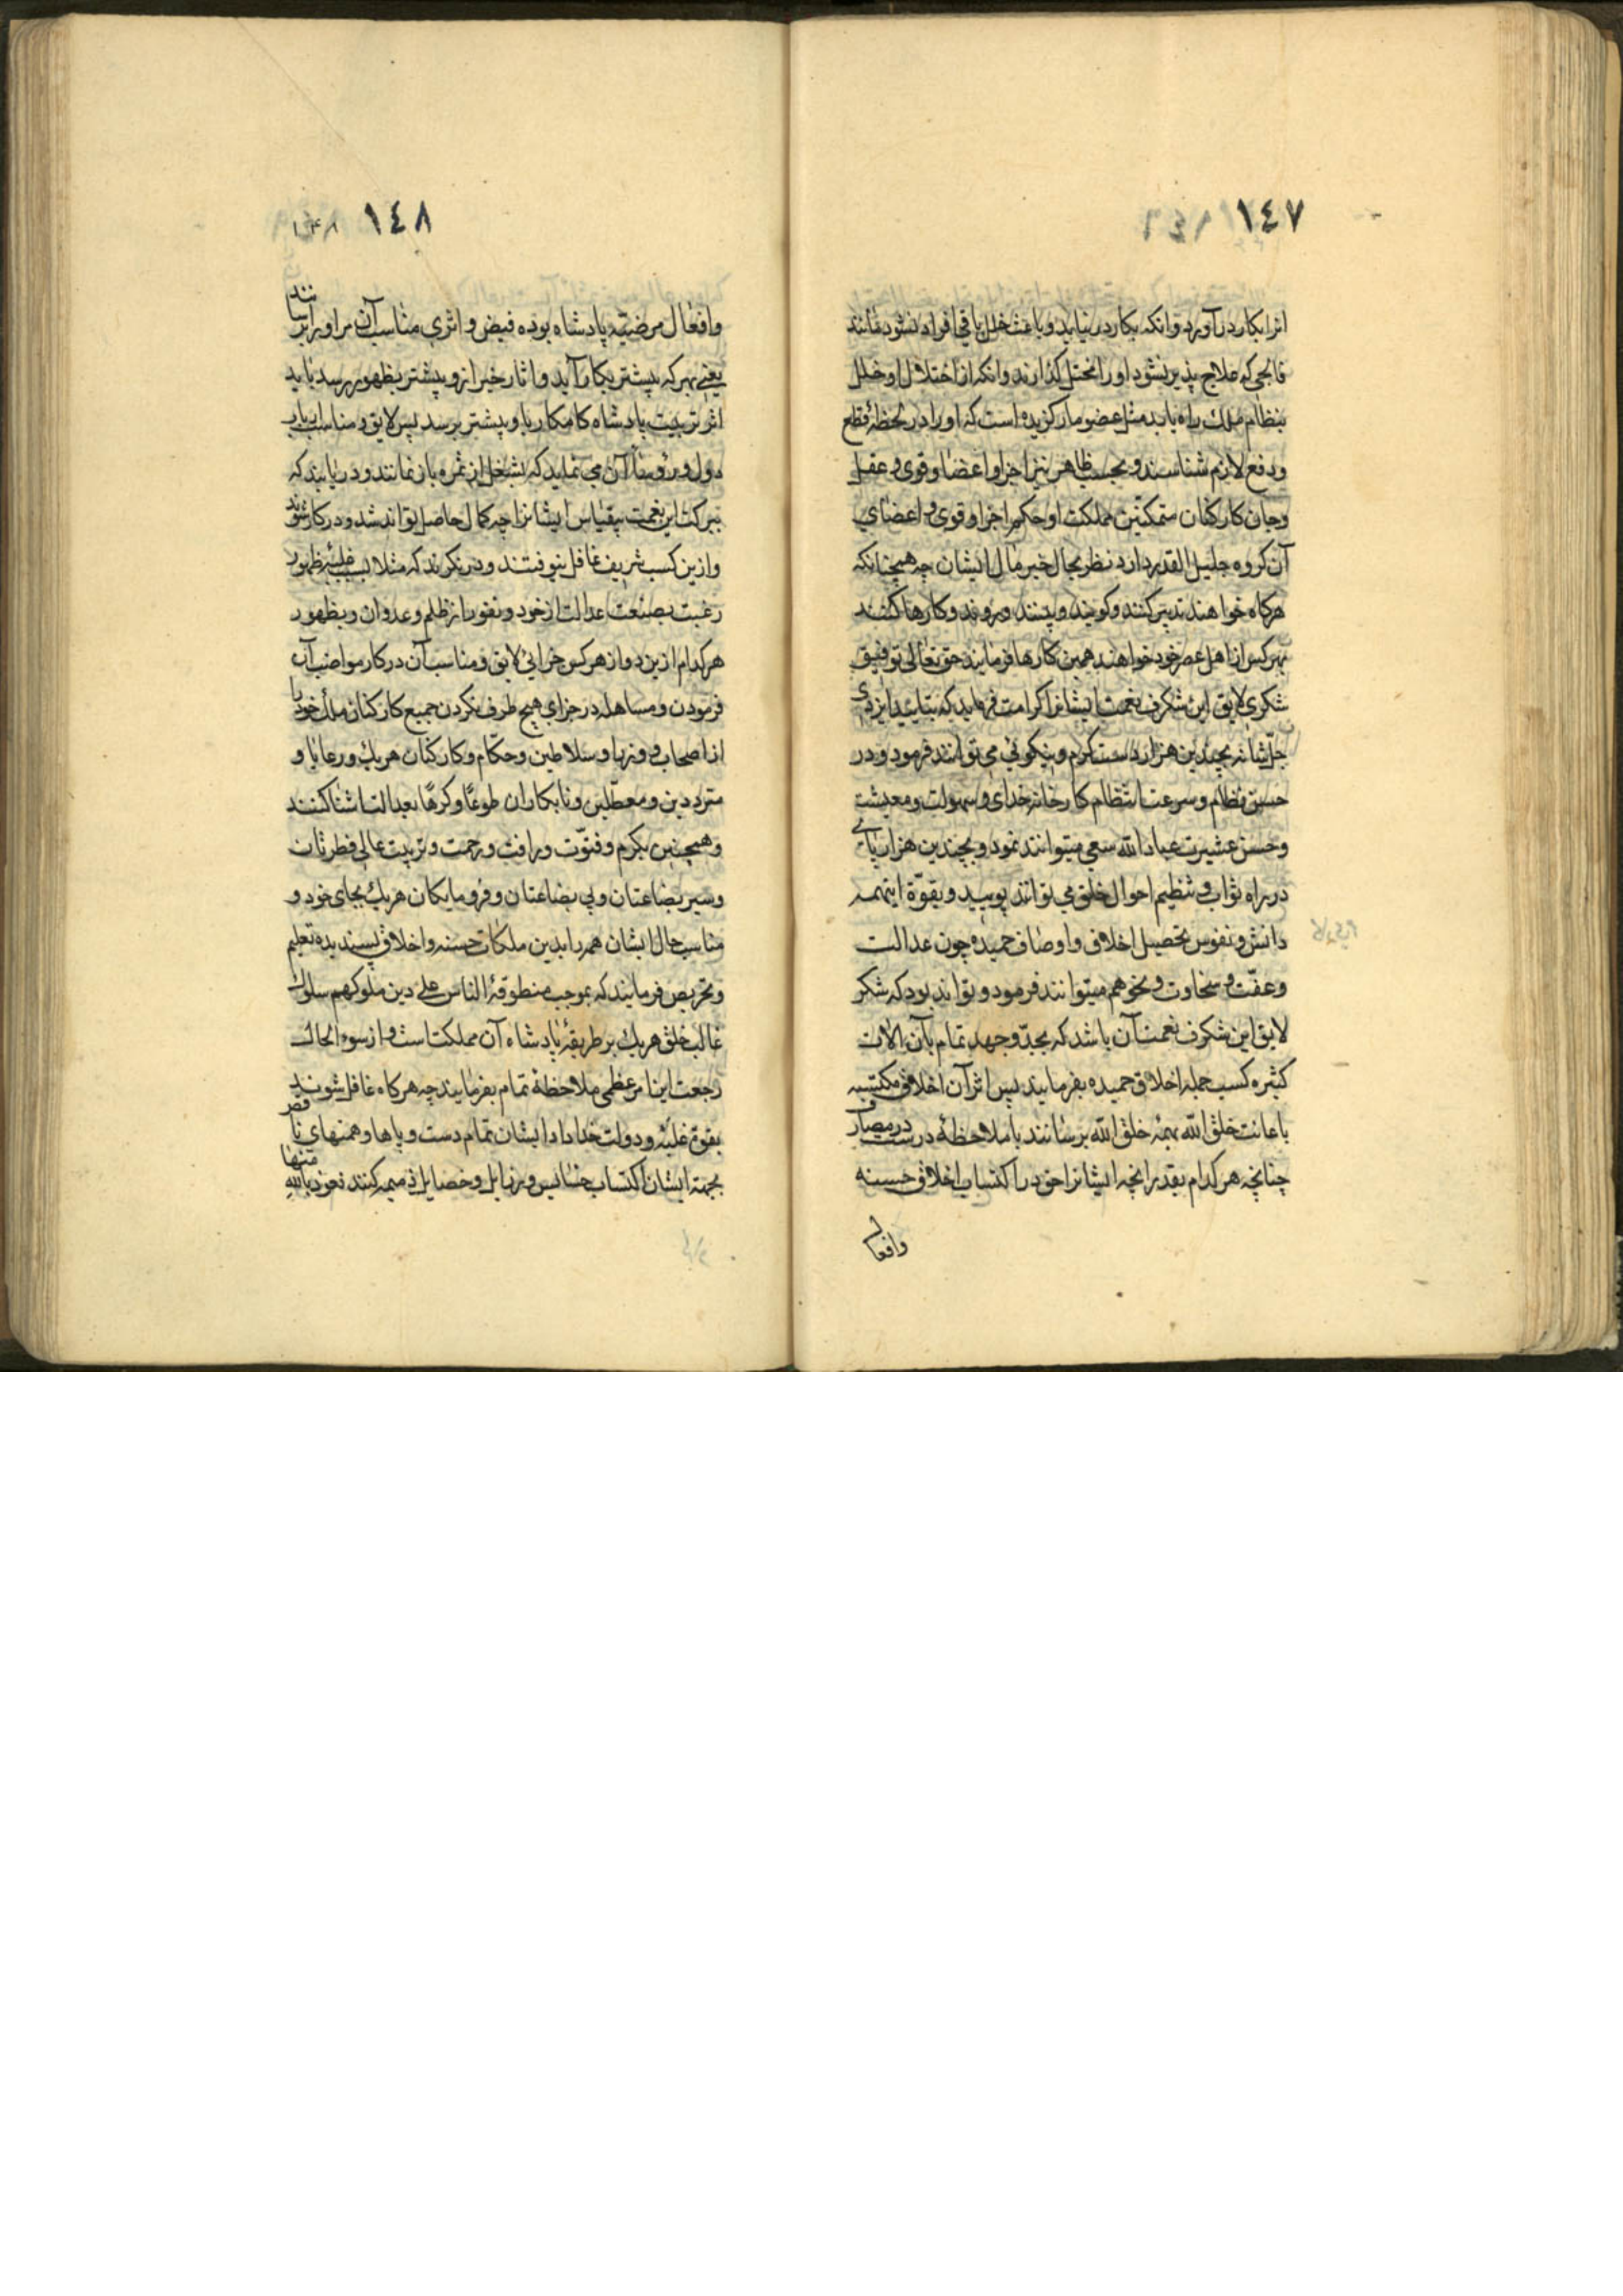 ١٤٧
انرا بکار درآورد وانکه بکار درنیاید و باعث خلل باقی افراد نشود مانند
فالجی که علاج پذیر نشود اورا مختل گذارند وانکه از اختلال او خلل
بنظام ملک راه یابد مثل عضو مار گزیده است که اورا در لحظهٔ قطع
ودفع لازم شناسند و بحسب ظاهر نیز اجزا و اعضا و قوی و عقل
وجان کارکنان مملکت او حکم اجزا و قوی و اعضای
آن گروه جلیل القدر دارد نظر بحال خیر مآل ایشان چه همچنانکه
هرکاه خواهند تدبیر کنند و کویند و بینند و روند و کارها کنند
بهر کس از اهل عصر خود خواهند همین کارها فرمایند حق تعالی توفیق
شکری لایق این شکرف نعمت ایشانرا کرامت فرماید که بتایید ایزدی
جلّ شانه بچندین هزار دست کرم و نیکوئی می توانند فرمود و در
حسن نظام و سرعت انتظام کارخانه خدای و سهولت و معیشت
وحسن عشیرت عباد الله سعی میتوانند نمود و بچندین هزار پای
در راه ثواب و تنظیم احوال خلق می توانند پویید و بقوّة اینهمه
دانش و نفوس تحصیل اخلاق و اوصاف حمیده چون عدالت
وعفّت و سخاوت و نحو هم میتوانند فرمود و تواند بود که شکر
لایق این شکرف نعمت آن باشد که بجدّ و جهد تمام بآن الات
کثیره کسب جمله اخلاق حمیده بفرمایند پس اثر آن اخلاق مکتسبه
باعانت خلق الله بهمهٔ خلق الله برسانند با ملاحظهٔ درست در مصارف
چنانچه هر کدام بقدر انچه ایشانرا حق در اکتساب اخلاق حسنه
وافعال
١٤٨ ۱۴۸
وافعال مرضیّه پادشاه بوده فیض و اثری مناسب آن مر او را برسانند
یعنی بهر که پیشتر بکار آید و اثار خیر ازو پیشتر بظهور رسد باید
اثر تربیت پادشاه کامکار باو پیشتر برسد پس لایق و مناسب ارباب
دول و رؤسا آن می نماید که بشغل از ثمره باز نمانند و دریابند که
ببرکت این نعمت بیقیاس ایشانرا چه کمال حاصل تواند شد و در کار شوند
وازین کسب شریف غافل نیوفتند و در نکرند که مثلا بسبب غلبهٔ ظهور
رغبت بصنعت عدالت از خود و نفور از ظلم و عدوان و بظهور
هرکدام ازین دو از هر کس جزائی لایق و مناسب آن در کار مواضب آن
فرمودن و مساهله در جزای هیچ طرف نکردن جمیع کارکنان ملک خود را
از اصحاب و وزرا و سلاطین و حکّام و کارکنان هریک و رعایا و
مترددین و معطّلین و نابکاران طوعًا و کرهًا بعدالت اشنا کنند
وهمچنین بکرم و فتوّت و رافت و رحمت و تربیت عالی فطرتان
وسیر بضاعتان و بی بضاعتان و فرومایکان هریک بجای خود و
مناسب حال ایشان همه را بدین ملکات حسنه و اخلاق پسندیده تعلیم
وتحریص فرمایند که بموجب منطوقهٔ الناس علی دین ملوکهم سلوک
غالب خلق هریک بر طریقهٔ پادشاه آن مملکتاست و از سوء الحال
رجعت این امر عظمی ملاحظهٔ تمام بفرمایند چه هرکاه غافل شوند
بقوّة غلبه و دولت خداداد ایشان تمام دست و پاها و همتهای ناقص
بجهة ایشان اکتساب خسایس و رذایل و خصایل ذمیمه کنند نعوذ بالله منها